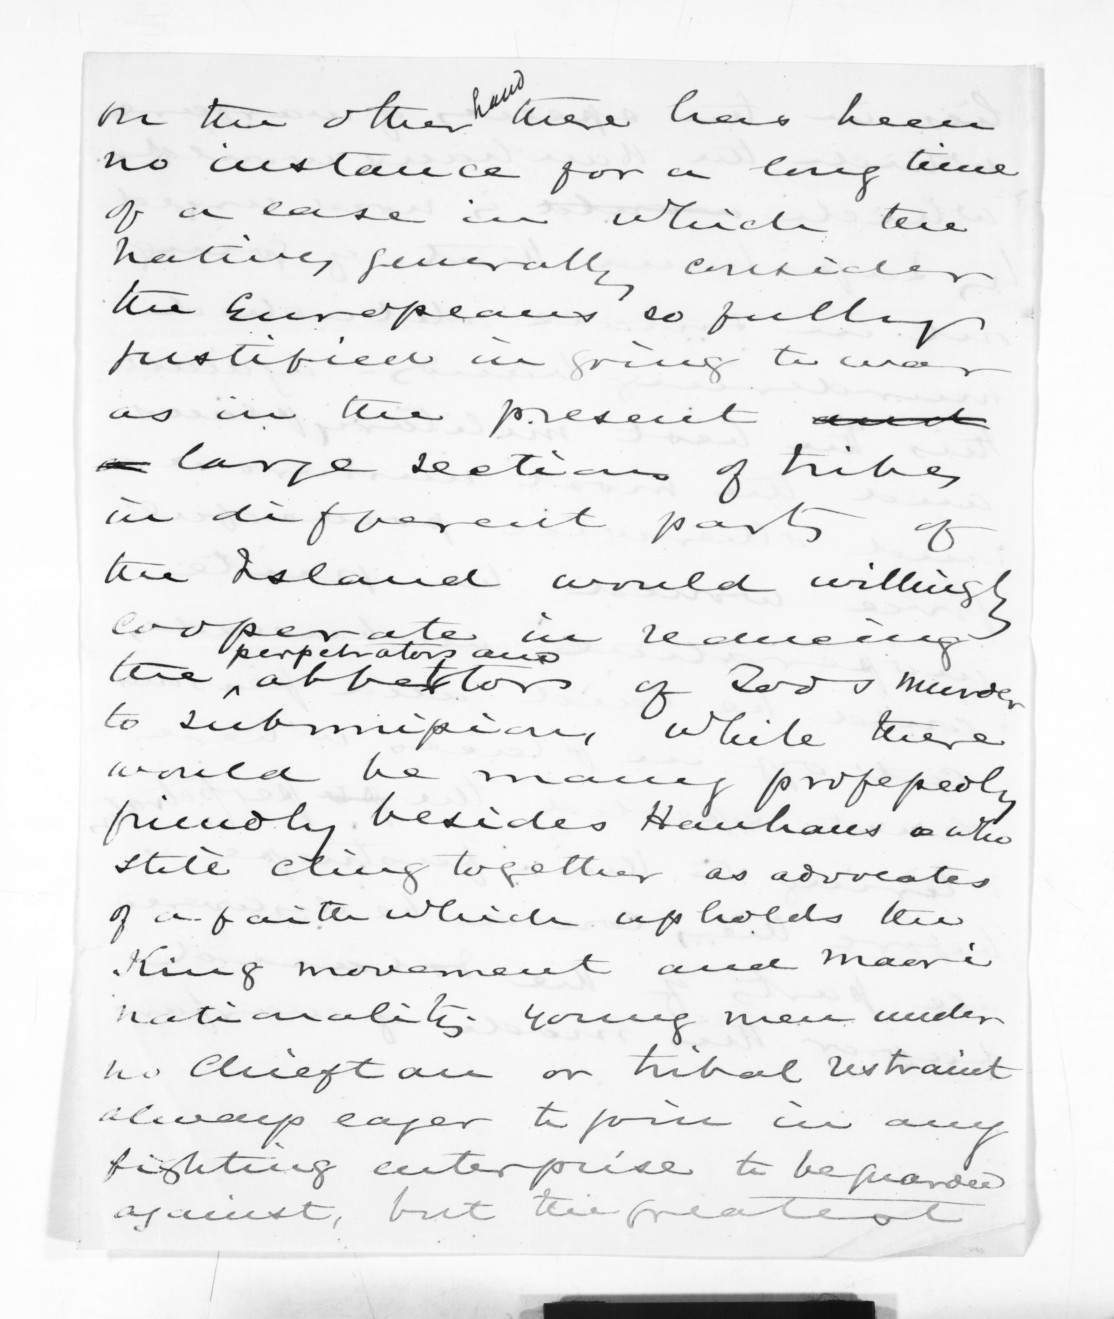 on the other hand there has been
no instance for a long time
of a case in which the
Natives generally consider
the Europeans so fully
justified in going to war
as in the present and
a large sections of tribes
in different parts of
the Island would willingly
cooperate in reducing
perpetrators and
the abbettors of Tods Murder
to submission, while there
would be many professedly
friendly besides Hauhaus who
still cling together as advocates
of a faith which upholds the
King movement and Maori
nationality young men under
no Chieftan or tribal restraint
always eager to join in any
fighting enterprise to be guarded
against, but the greatest